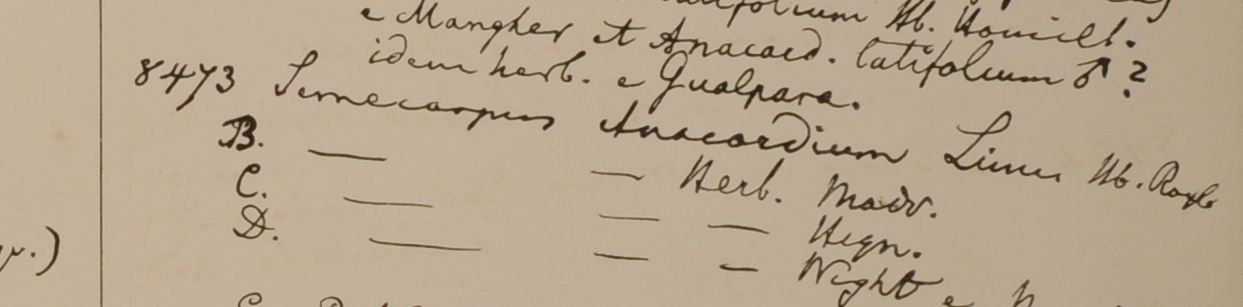 latifolium Hb. Hamilt.
e Mangher et Anacard. latifolium ♂ ?
idem herb. e Gualpara.
8473 Semecarpus Anacardium Linn. Hb. Royle
B. — — Herb. Madr.
C. — — — Heyn.
D. — — — Wight e